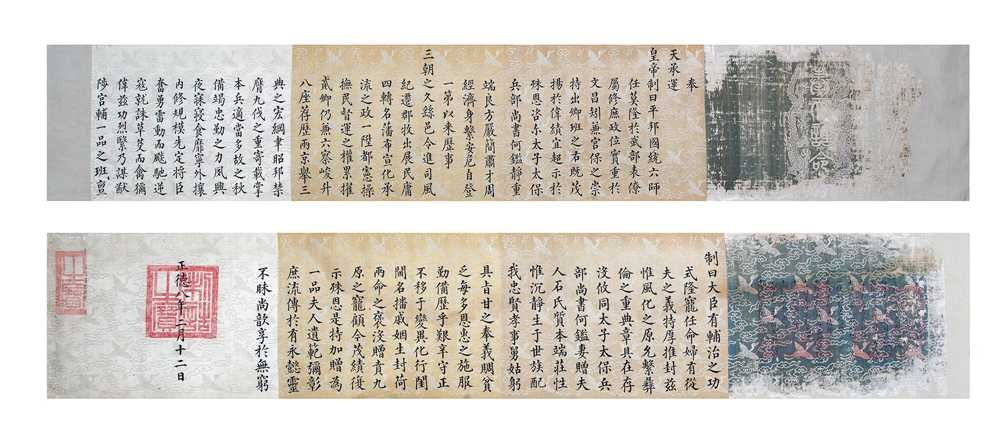 奉
天承運
皇帝制曰平邦國統六師
任莫隆於武部表僚
屬修庶政位實重於
文昌矧兼宮保之崇
持出卿班之右旣茂
揚於偉績宜超示於
殊恩咨尔太子太保
兵部尚書何鑑靜重
端良方嚴簡肅才周
經濟身繫安危自登
一第以來歷事
三朝之久繇邑令進司風
紀遷郡牧出展民庸
四轉名藩布宣化承
流之政一陞都憲操
撫民督運之權累擢
貳卿仍兼六察峻升
八座荐歷兩京舉三
典之宏綱聿昭邦禁
膺九伐之重寄載掌
本兵適當多故之秋
備竭忠勤之力夙興
夜寐寢食靡寧外攘
內修規模先定將臣
奮勇雷動而飈馳逆
寇就誅草芟而禽獮
偉茲功烈繄乃謀猷
陟宮輔一品之班
制曰大臣有輔治之功
式隆寵任命婦有從
夫之義特厚推封茲
惟風化之原允繫彝
倫之重典章具在存
沒攸同太子太保兵
部尚書何鑑妻贈夫
人石氏質本端莊性
惟沉靜生于世族配
我忠賢孝事舅姑躬
具旨甘之奉義賙貧
乏每多恩惠之施服
勤備歷乎艱辛守正
不移于變異化行閨
閫名播戚姻生封荷
兩命之褒沒贈賁九
原之寵顧今茂績復
示殊恩是持加贈爲
一品夫人遺範彌彰
庶流傳於有永懿靈
不昧尚歆享於無窮
正德八年二月十二日